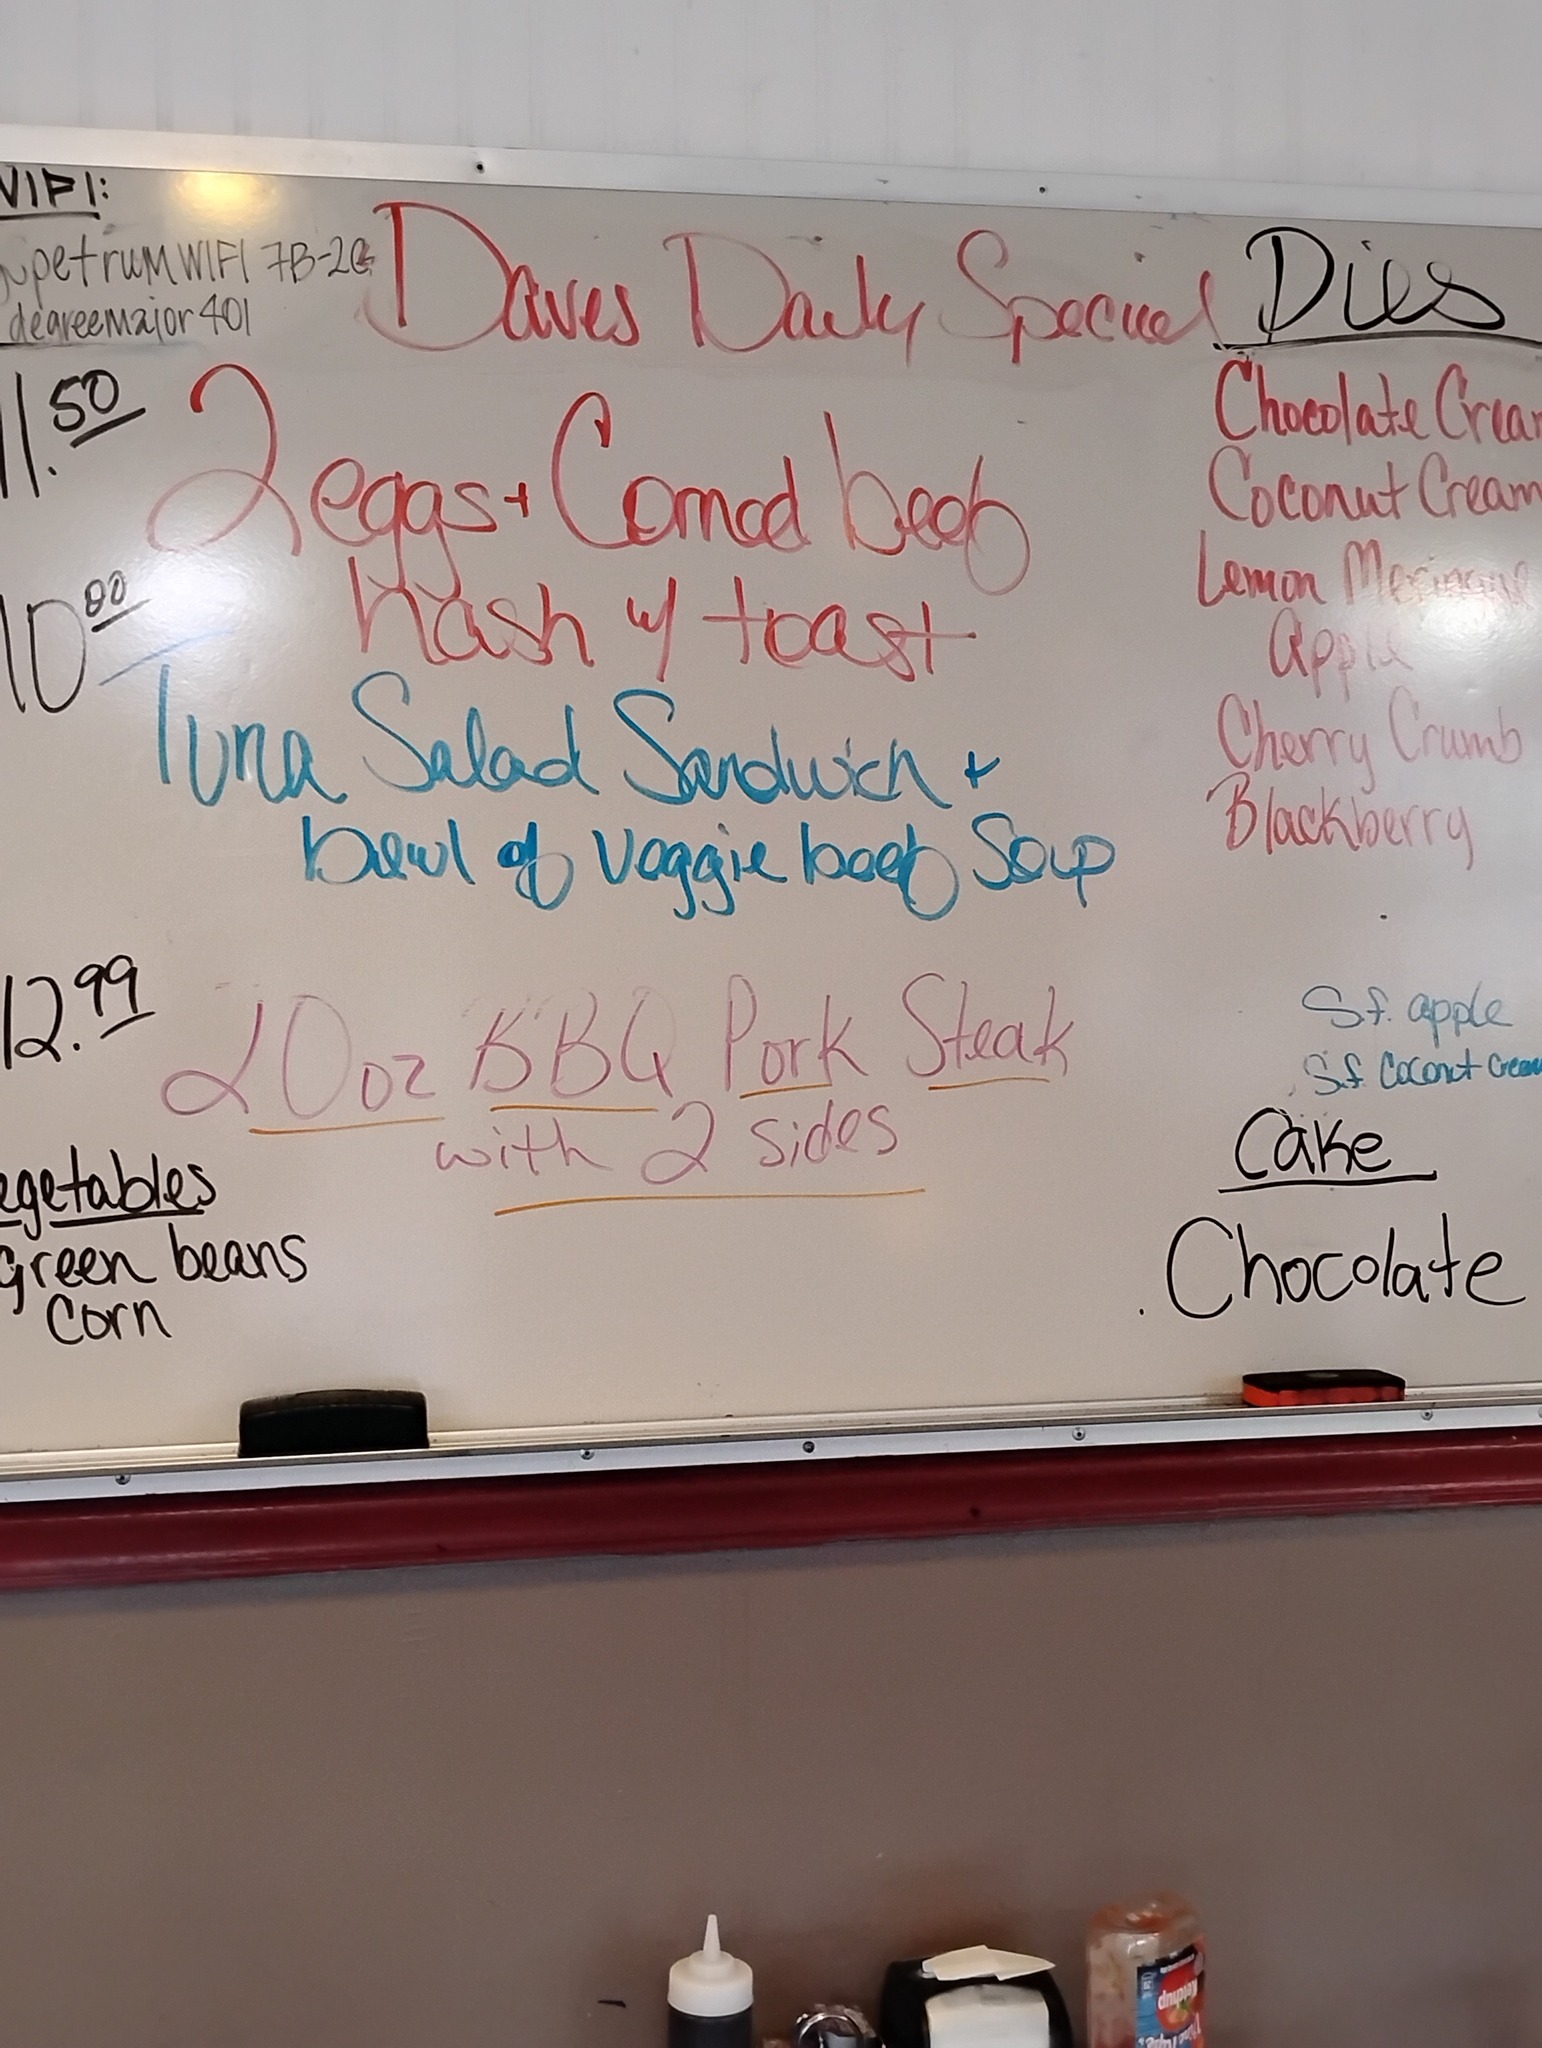 WIFI:
SpetrumWIFI 7B-2G
degreemajor401
Daves Daily Special
11.50
2 eggs + Corned beef
hash w/ toast
10.00
Tuna Salad Sandwich +
bowl of veggie beef Soup
12.99
20oz BBQ Pork Steak
with 2 sides
egetables
Green beans
Corn
Pies
Chocolate Cream
Coconut Cream
Lemon Meringue
Apple
Cherry Crumb
Blackberry
S.f. apple
S.f. Coconut Cream
Cake
Chocolate
Ketchup